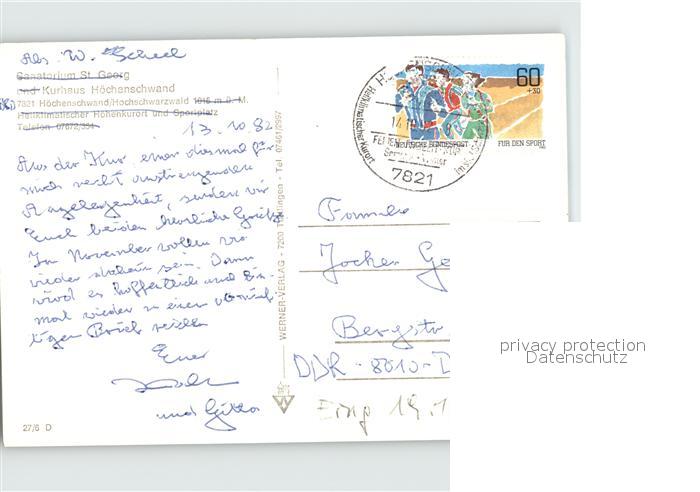 Abs. W. Scheel
Sanatorium St. Georg
und Kurhaus Höchenschwand
7821 Höchenschwand/Hochschwarzwald 1015 m ü. M.
Heilklimatischer Höhenkurort und Sportplatz
Telefon 07672/354
13.10.82
Aus der Kur, einer diesmal für
mich recht anstrengenden
Angelegenheit, senden wir
Euch beiden herzliche Grüße
Im November wollen wir
wieder daheim sein. Dann
wird es hoffentlich und ein-
mal wieder zu einem vernünf-
tigen Brief reichen
Euer
und Gitta
27/6 D
WERNER-VERLAG - 7200 Tuttlingen - Tel. 07461/2997
Heilklimatischer Kurort
7821
60
+30
DEUTSCHE BUNDESPOST
FÜR DEN SPORT
Familie
Jochen Ge
Bergstr
DDR - 8010 - D
Eing 19.1
privacy protection
Datenschutz